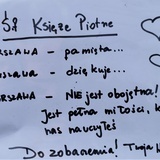 Ś.P. Księże Piotrze
RSZAWA - pamięta...
RSZAWA - dziękuje...
RSZAWA - NIE jest obojętna!
Jest pełna miłości, k
nas nauczyłeś
Do zobaczenia! Twoja